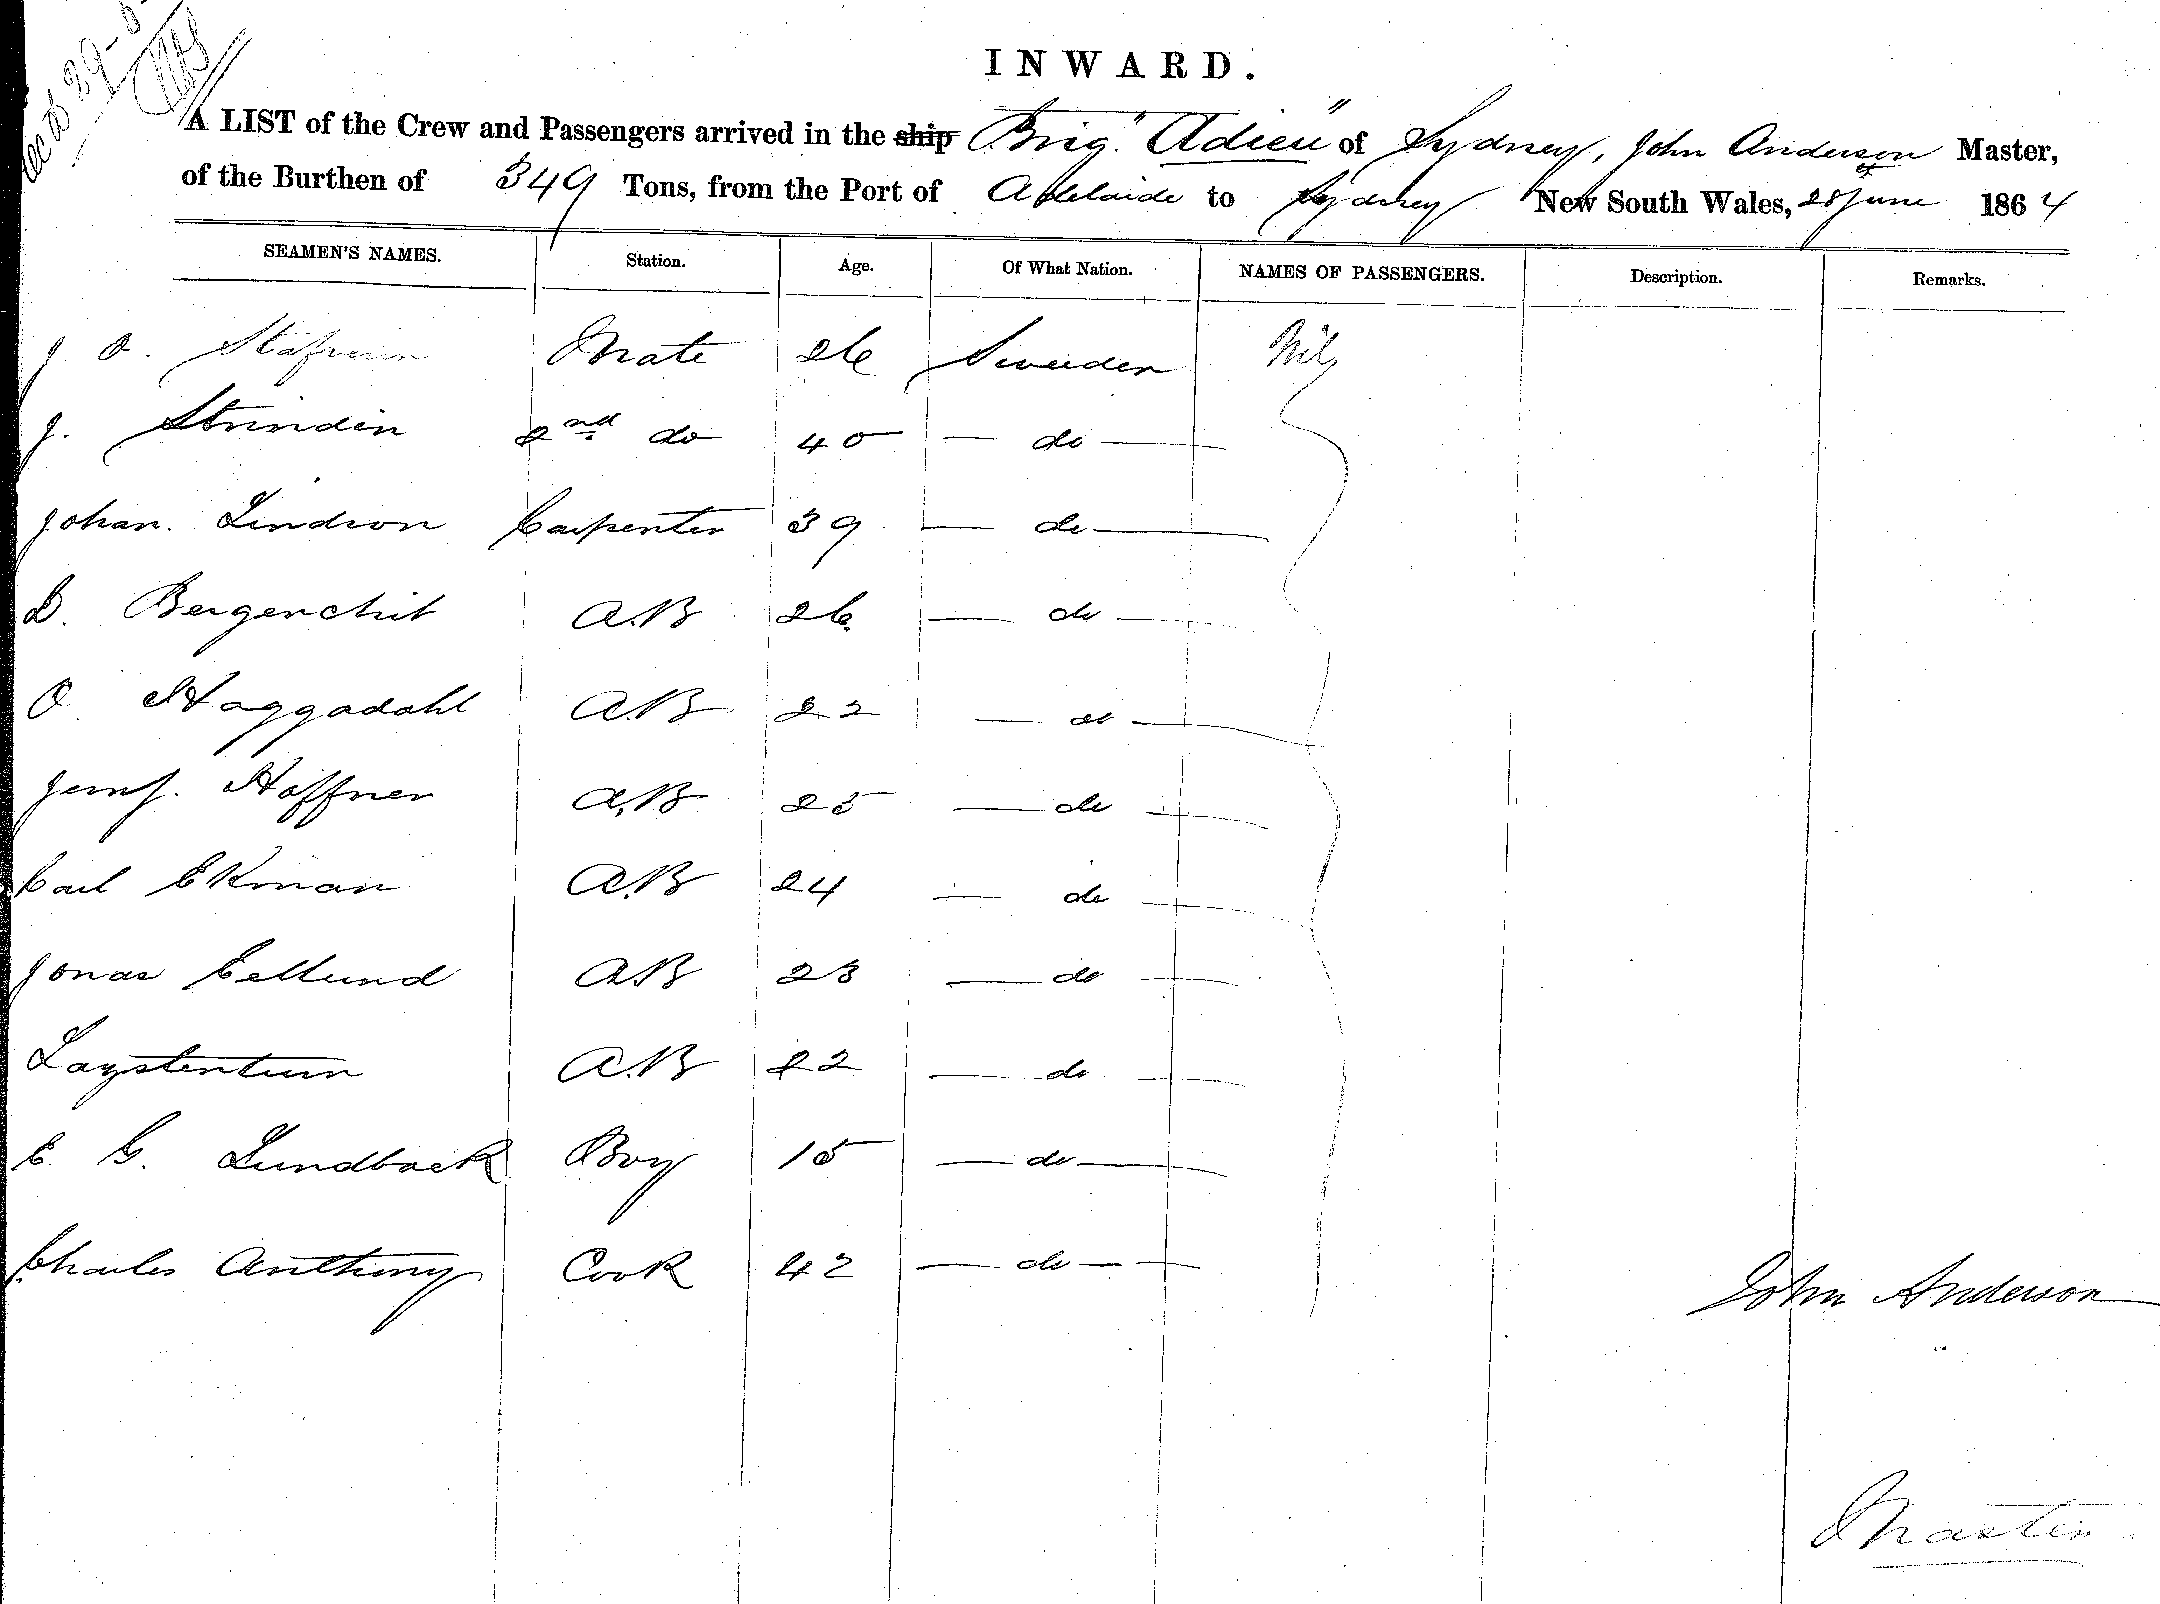 INWARD.
A LIST of the Crew and Passengers arrived in the ship Brig "Adieu" of Sydney, John Anderson Master,
of the Burthen of 349 Tons, from the Port of Adelaide to Sydney New South Wales, 28 June 1864
SEAMEN'S NAMES. Station. Age. Of What Nation. NAMES OF PASSENGERS. Description. Remarks.
J O. Mate 26 Sweden Nil
J. Strindin 2nd do 40 — do —
Johan. Lindron Carpenter 39 — do —
D. Bergenchit A.B 26 — do —
O Haggadahl A.B 22 — do —
Hoffner A.B 25 — do —
Carl Ekman A.B 24 — do —
Jonas Cellund A.B 23 — do —
A.B 22 — do —
C. G. Lundback Boy 15 — do —
Charles Anthony Cook 42 — do —
John Anderson
Master